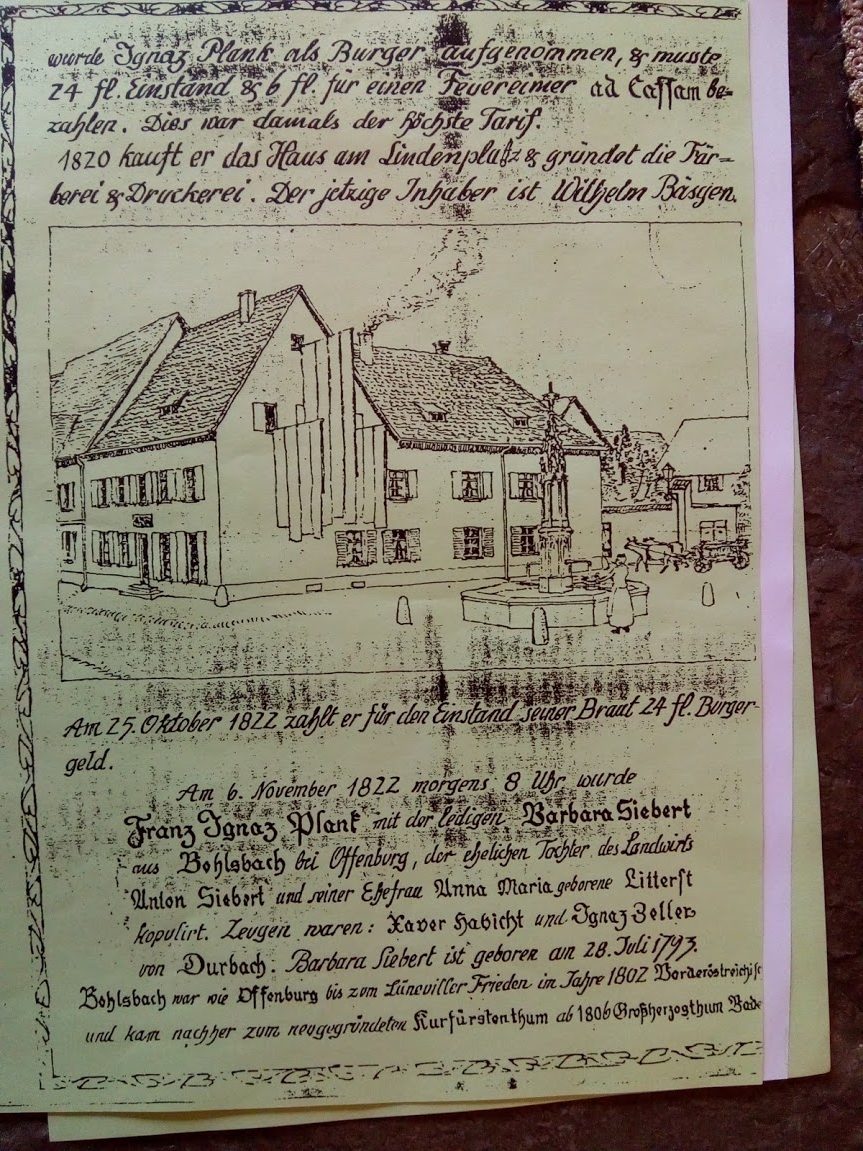 wurde Ignaz Plank als Burger aufgenommen, & musste
24 fl. Einstand & 6 fl. für einen Feuereimer ad Cassam be=
zahlen. Dies war damals der höchste Tarif.
1820 kauft er das Haus am Lindenplatz & gründet die Fär=
berei & Druckerei. Der jetzige Inhaber ist Wilhelm Bäsgen.
Am 25. Oktober 1822 zahlt er für den Einstand seiner Braut 24 fl. Burger-
geld.
Am 6. November 1822 morgens 8 Uhr wurde
Franz Ignaz Plank mit der ledigen Barbara Siebert
aus Bohlsbach bei Offenburg, der ehelichen Tochter des Landwirts
Anton Siebert und seiner Ehefrau Anna Maria geborene Litterst
kopulirt. Zeugen waren: Xaver Habicht und Ignaz Zeller
von Durbach. Barbara Siebert ist geboren am 28. Juli 1793.
Bohlsbach war wie Offenburg bis zum Lüneviller Frieden im Jahre 1802 Vorderöstreichisc
und kam nachher zum neugegründeten Kurfürstenthum ab 1806 Großherzogthum Bade